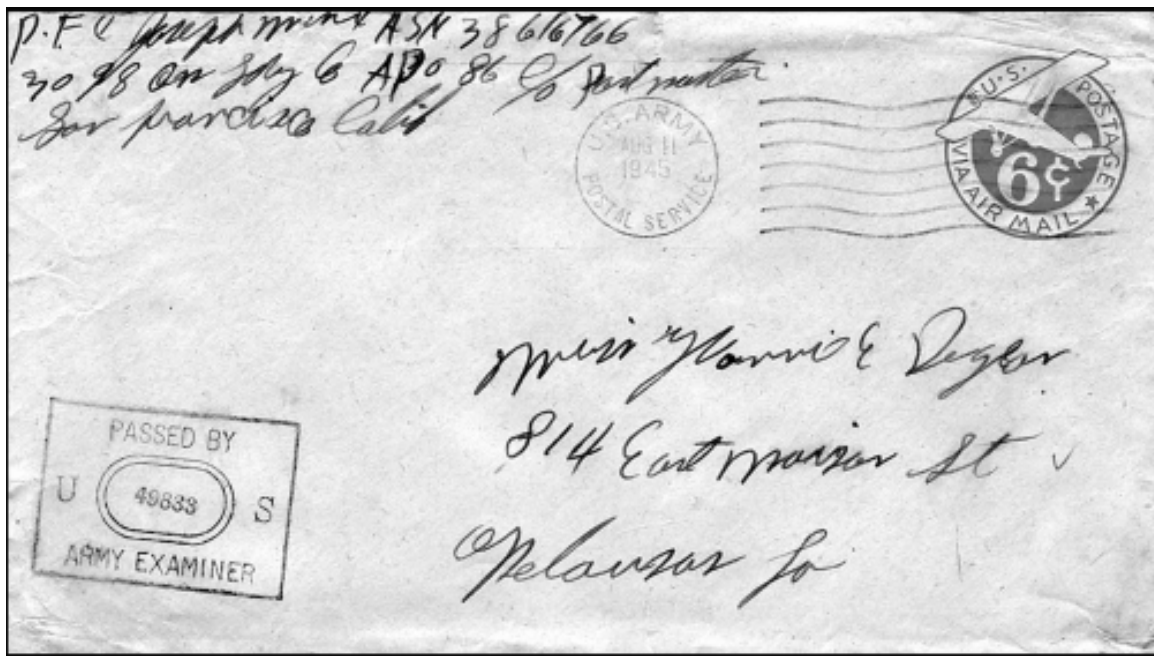 P.F.C Joseph ASN 38616766
3098 Qm Sdy C APO 86 c/o Postmaster
San francisco Calif
U.S. ARMY
AUG 11
1945
POSTAL SERVICE
U.S. POSTAGE
6¢
VIA AIR MAIL
Miss E
814 East St
Opelousas La
PASSED BY
U 49833 S
ARMY EXAMINER